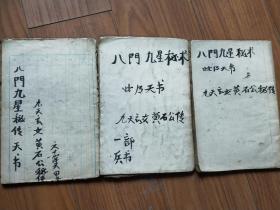 八門九星秘传天书
九天玄女黄石公秘传
八門九星秘术
廿乃天书
九天玄女黄石公传
一部
兵书
八門九星秘术
廿乃天书
九天玄女黄石公传